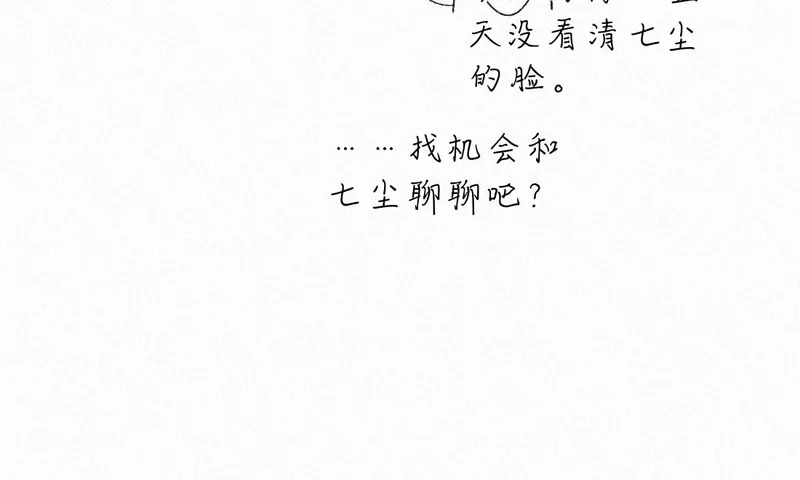 天没看清七尘
的脸。
……找机会和
七尘聊聊吧?